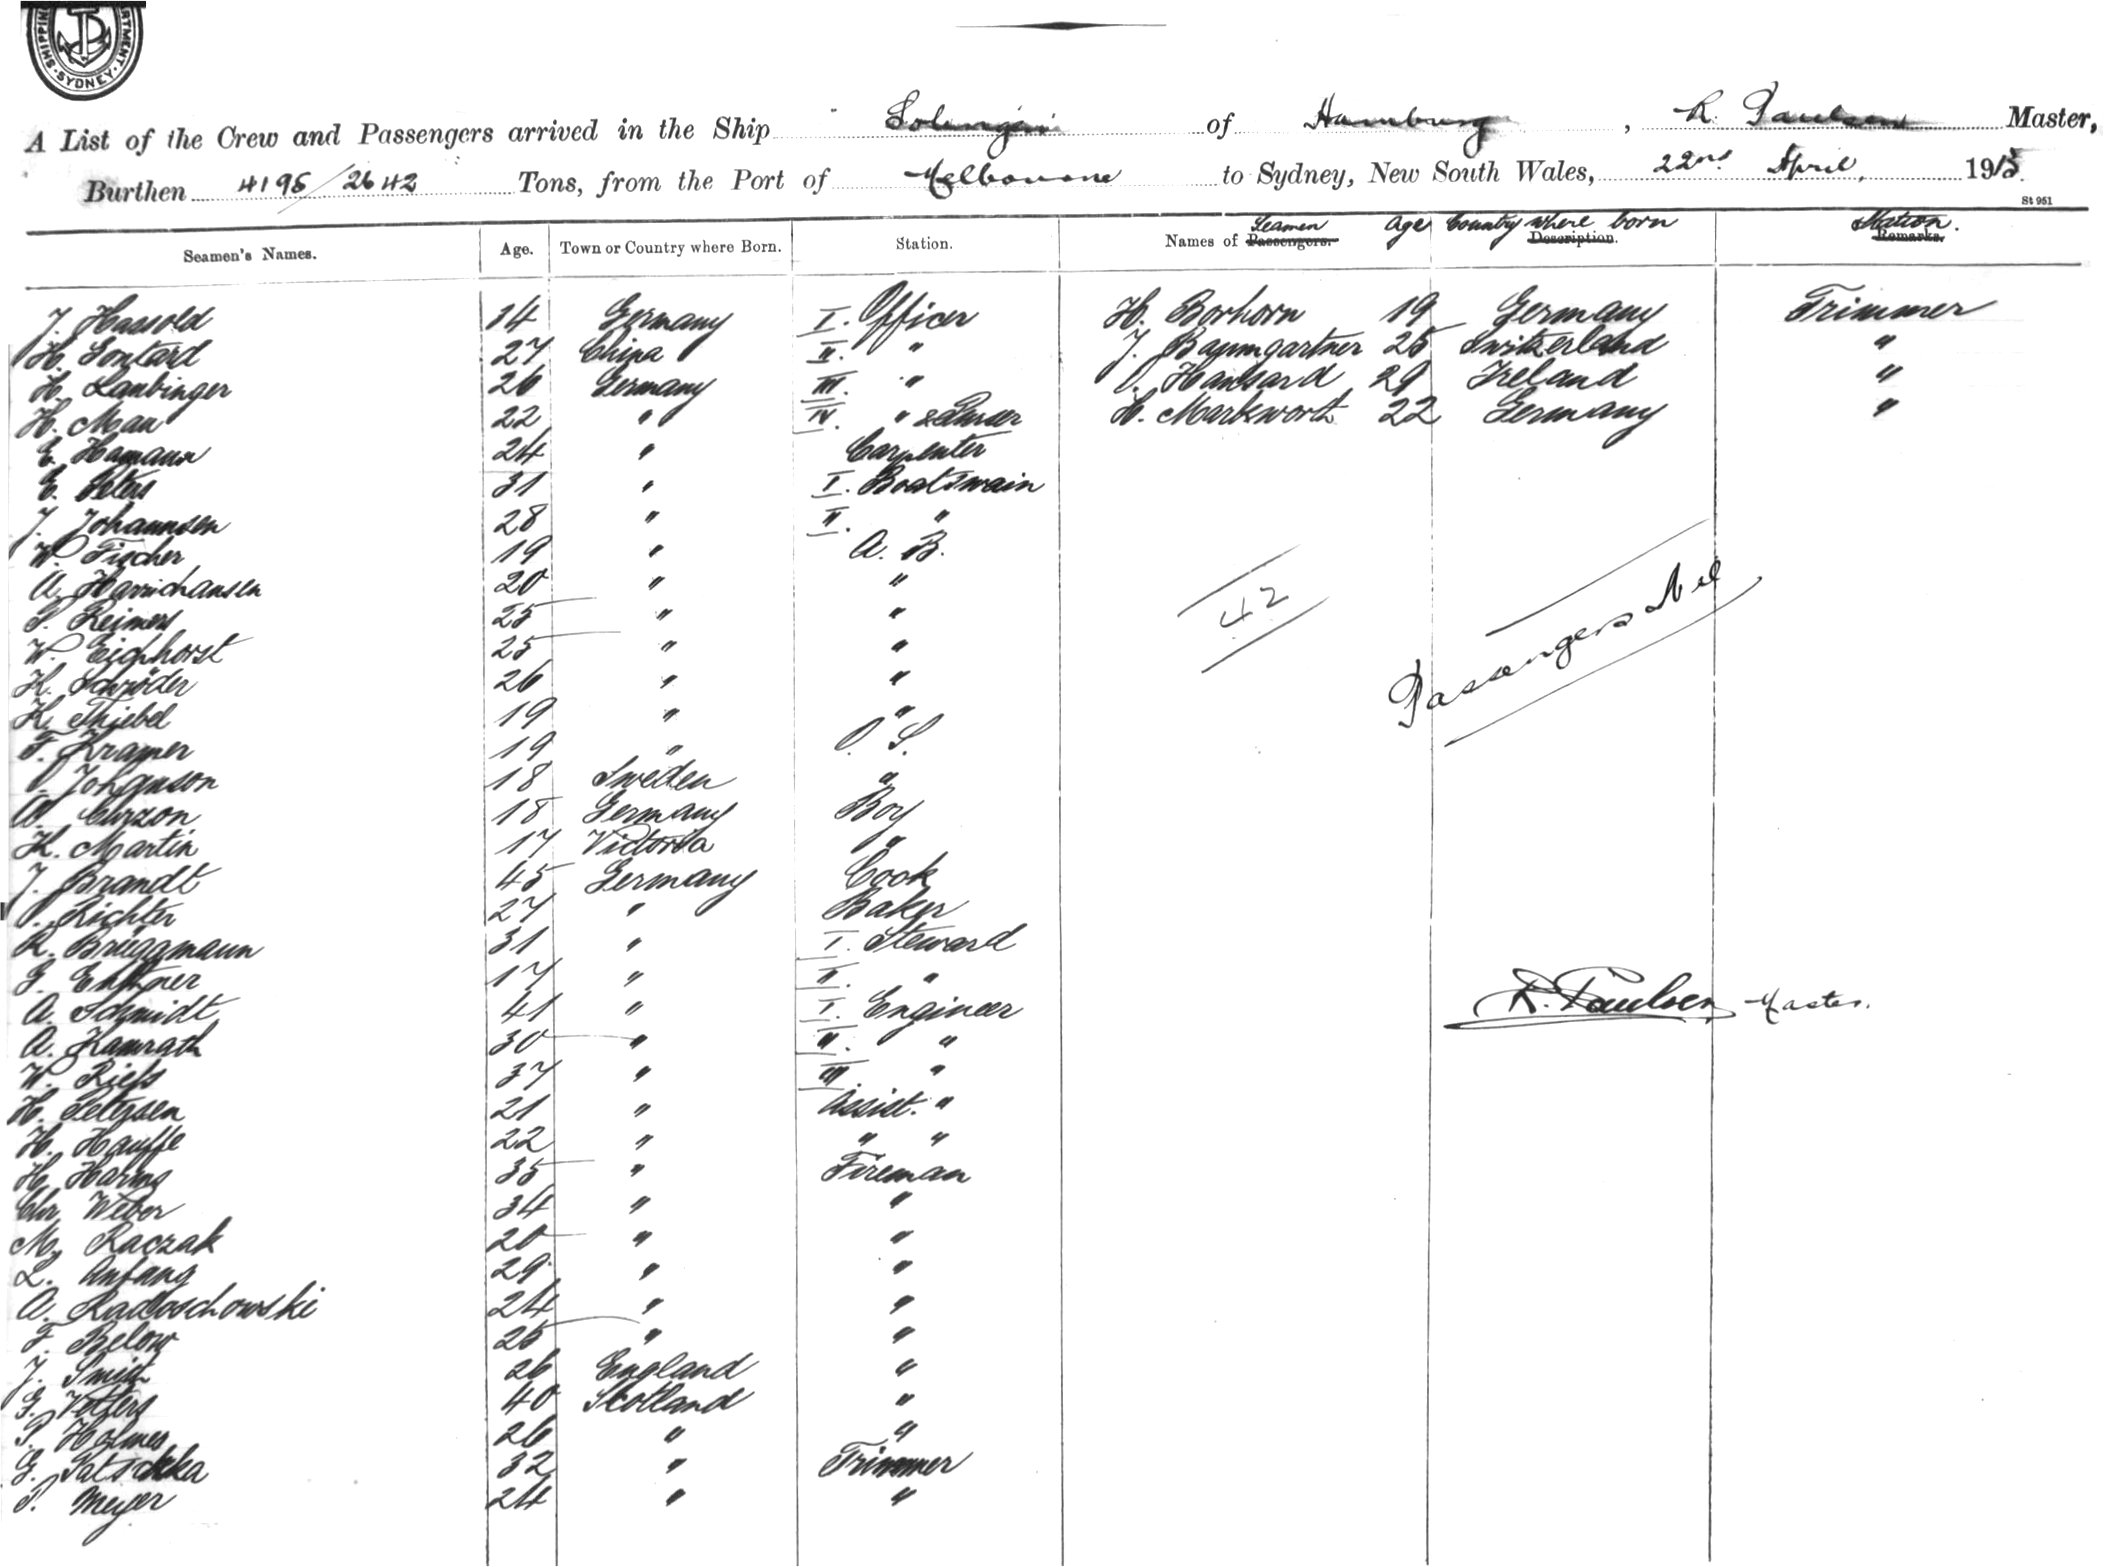 SHIPPING DEPARTMENT SYDNEY
A List of the Crew and Passengers arrived in the Ship Solingen of Hamburg, R. Paulsen Master,
Burthen 4195/2642 Tons, from the Port of Melbourne to Sydney, New South Wales, 22nd April, 1913
St 951
Seamen's Names. Age. Town or Country where Born. Station. Names of Passengers. Seamen Age Description. Country where born Remarks. Station.
J. Hassold 34 Germany I. Officer H. Borhorn 19 Germany Trimmer
H. Sontard 27 China II. " J. Baumgartner 25 Switzerland "
H. Laubinger 26 Germany III. " O. Hansard 29 Ireland "
H. Mau 22 " IV. " & Purser H. Markworth 22 Germany "
E. Hamann 24 " Carpenter
E. Peters 31 " I. Boatswain
J. Johannsen 28 " II. "
W. Fischer 19 " A. B.
A. Harrichausen 20 " "
P. Reimers 25 " "
W. Eichhorst 25 " "
K. Schröder 26 " "
K. Thiebel 19 " "
F. Kramer 19 " O. S.
O. Johanson 18 Sweden "
W. Curzon 18 Germany Boy
K. Martin 17 Victoria "
J. Brandt 45 Germany Cook
O. Richter 27 " Baker
R. Brüggmann 31 " I. Steward
G. 17 " II. "
A. Schmidt 41 " I. Engineer
A. Kamrath 30 " II. "
W. Riefs 37 " III "
H. Petersen 21 " Assist. "
H. Hauffe 22 " " "
H. Harms 35 " Fireman
Chr. Weber 34 " "
M. Raczak 20 " "
L. Anfang 29 " "
A. Radloschowski 24 " "
F. Below 25 " "
J. Smith 26 England "
G. Vetters 40 Scotland "
P. Holmes 26 " "
G. Patschka 32 " Trimmer
P. Meyer 24 " "
42
Passengers Nil
R. Paulsen, Master.